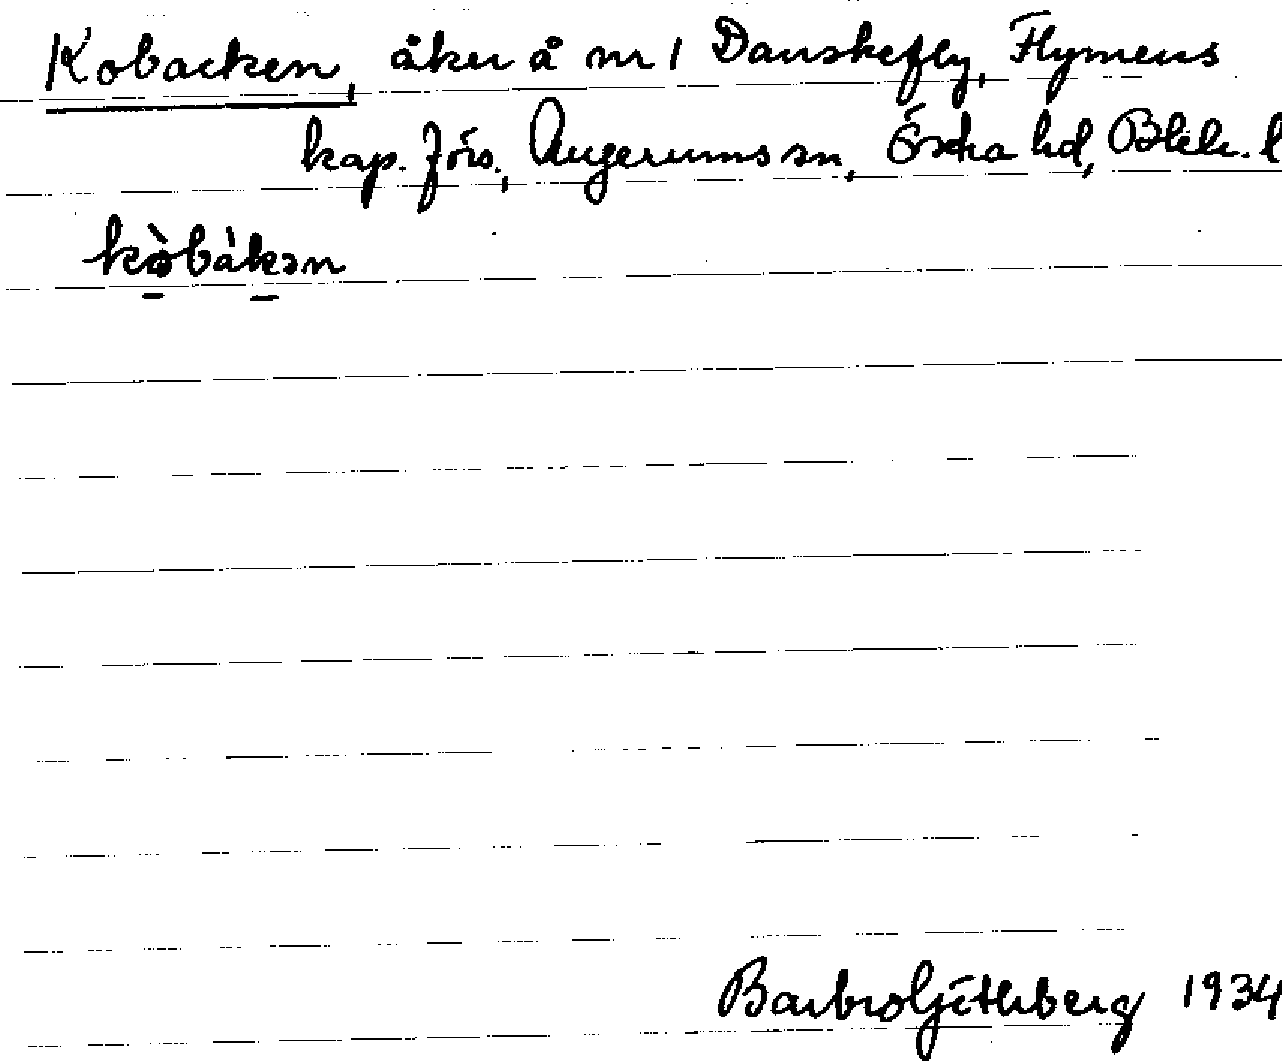 Kobacken, åker å nr 1 Danskefly, Flymens
kap. förs., Augerums sn, Östra hd, Blek. l
kòbàkən
Barbro Götherberg 1934